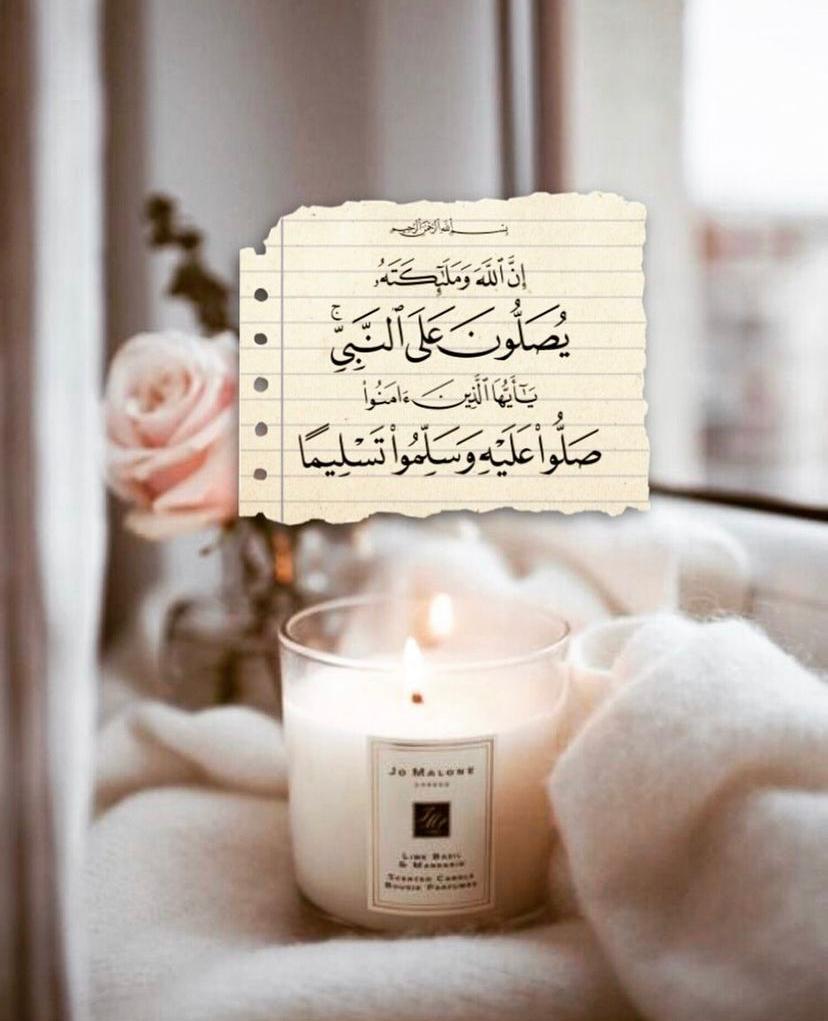 بسم الله الرحمن الرحيم
إِنَّ ٱللَّهَ وَمَلَٰٓئِكَتَهُۥ
يُصَلُّونَ عَلَى ٱلنَّبِىِّ ۚ
يَٰٓأَيُّهَا ٱلَّذِينَ ءَامَنُوا۟
صَلُّوا۟ عَلَيْهِ وَسَلِّمُوا۟ تَسْلِيمًا
JO MALONE
LONDON
LIME BASIL
& MANDARIN
SCENTED CANDLE
BOUGIE PARFUMÉE